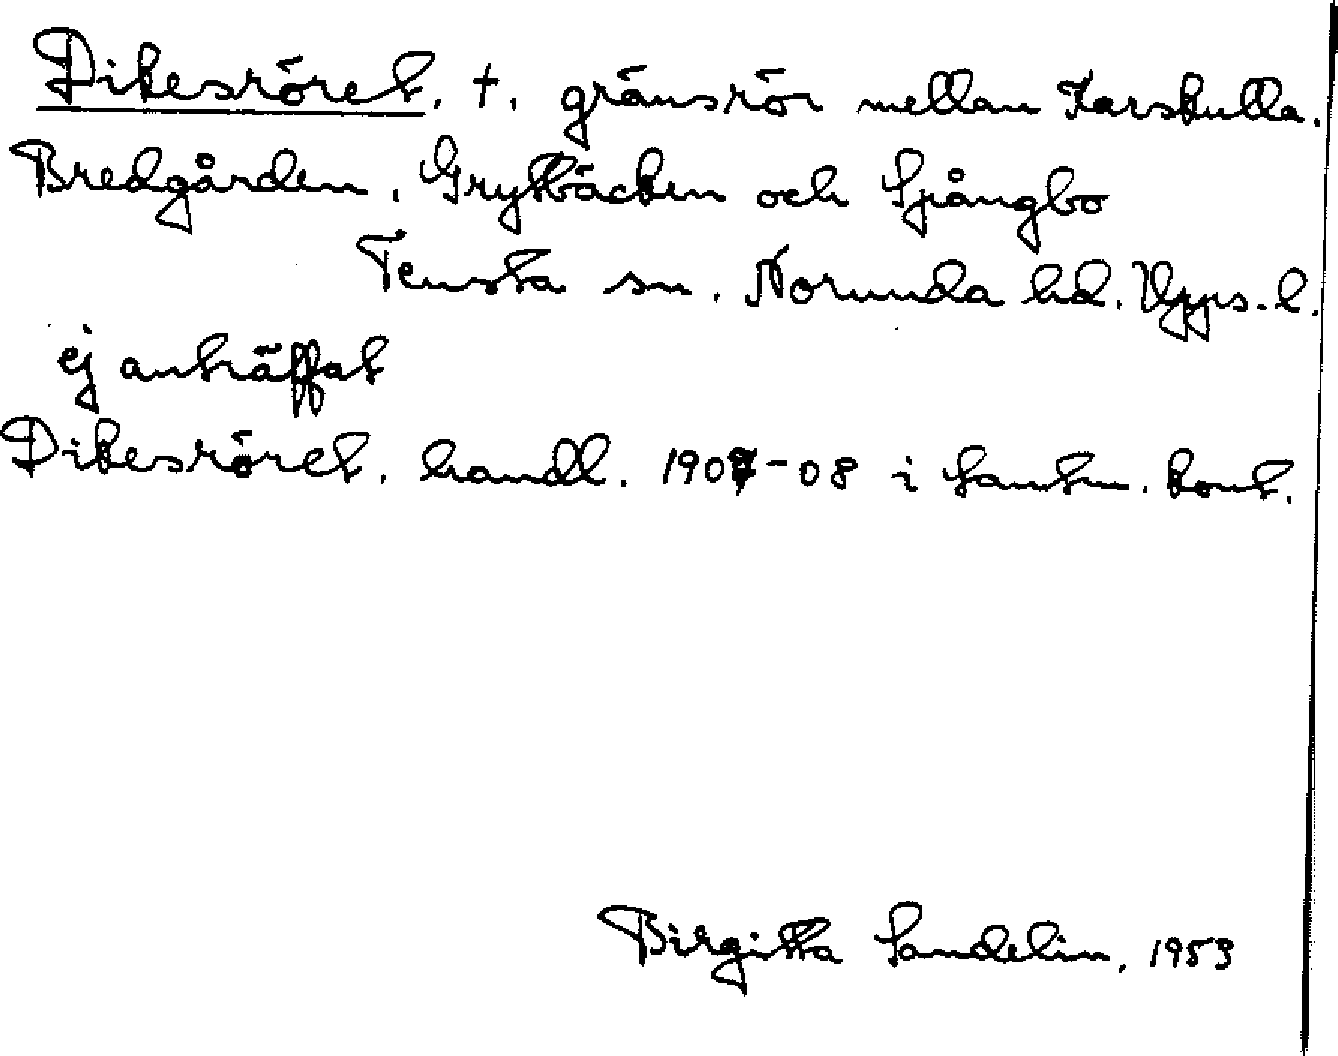 Dikesröret, †, gränsrör mellan Karskulla,
Bredgården, Gryttbäcken och Spångbo
Tensta sn, Norunda hd, Upps. l.
ej anträffat
Dikesröret, handl. 1907-08 i lantm. kont.
Birgitta Sandelin, 1953